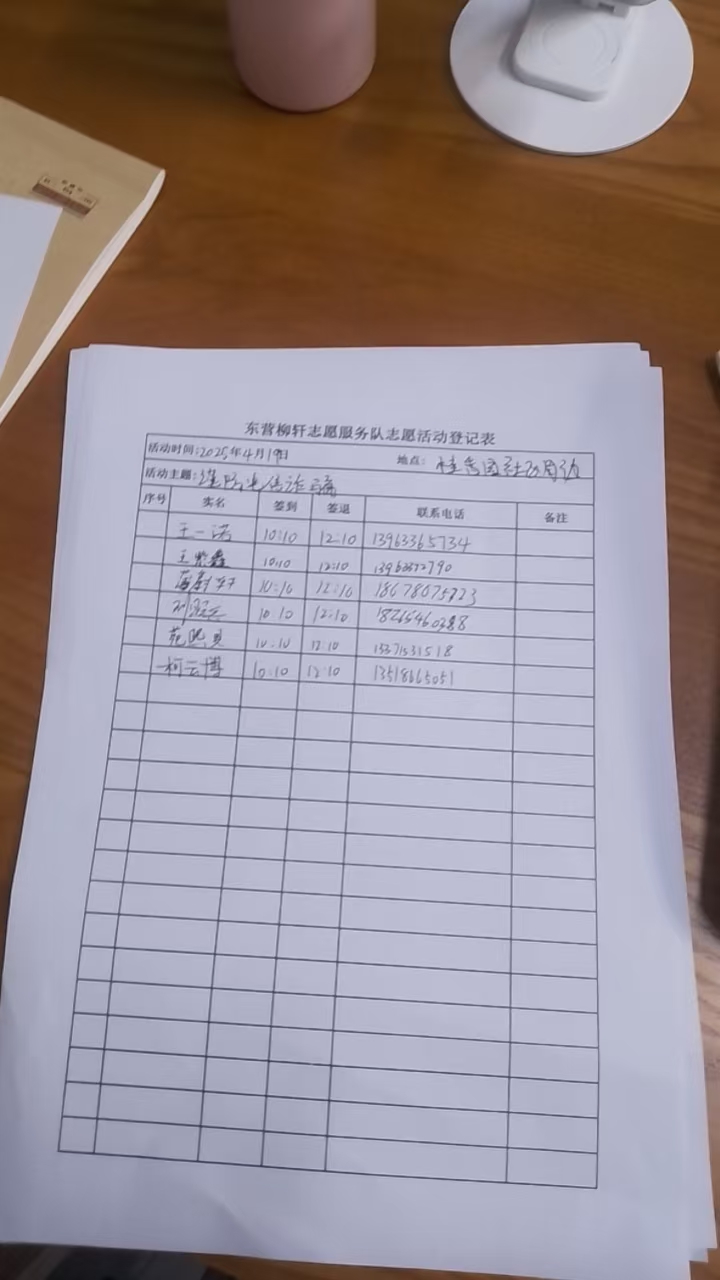 东营柳轩志愿服务队志愿活动登记表
活动时间:2025年4月19日 地点: 桂香园社区周边
活动主题: 谨防电信诈骗
序号 实名 签到 签退 联系电话 备注
王一诺 10:10 12:10 13963365734
王紫鑫 10:10 12:10
10:10 12:10 18678675773
10:10 12:10 18265460388
苑熙貝 10:10 12:10 15371531518
柯云博 10:10 12:10 13518665051